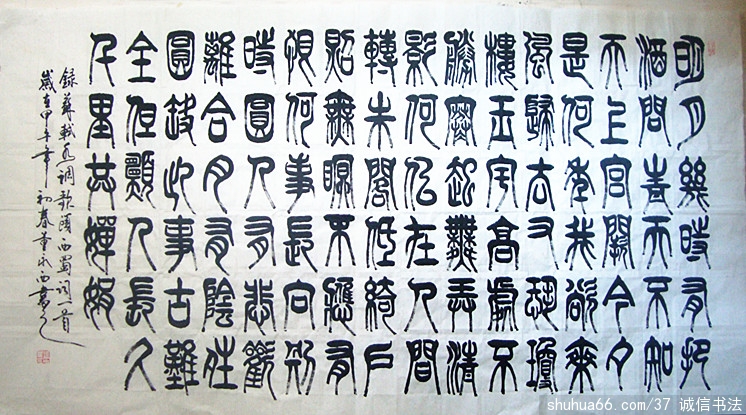 明月幾時有把
酒問青天不知
天上宮闕今夕
是何年我欲乘
風歸去又恐瓊
樓玉宇高處不
勝寒起舞弄清
影何似在人間
轉朱閣低綺戶
照無眠不應有
恨何事長向別
時圓人有悲歡
離合月有陰晴
圓缺此事古難
全但願人長久
千里共嬋娟
錄蘇軾水調歌頭西蜀詞一首
歲在甲午年初春董永西書之
shuhua66.com/37 诚信书法